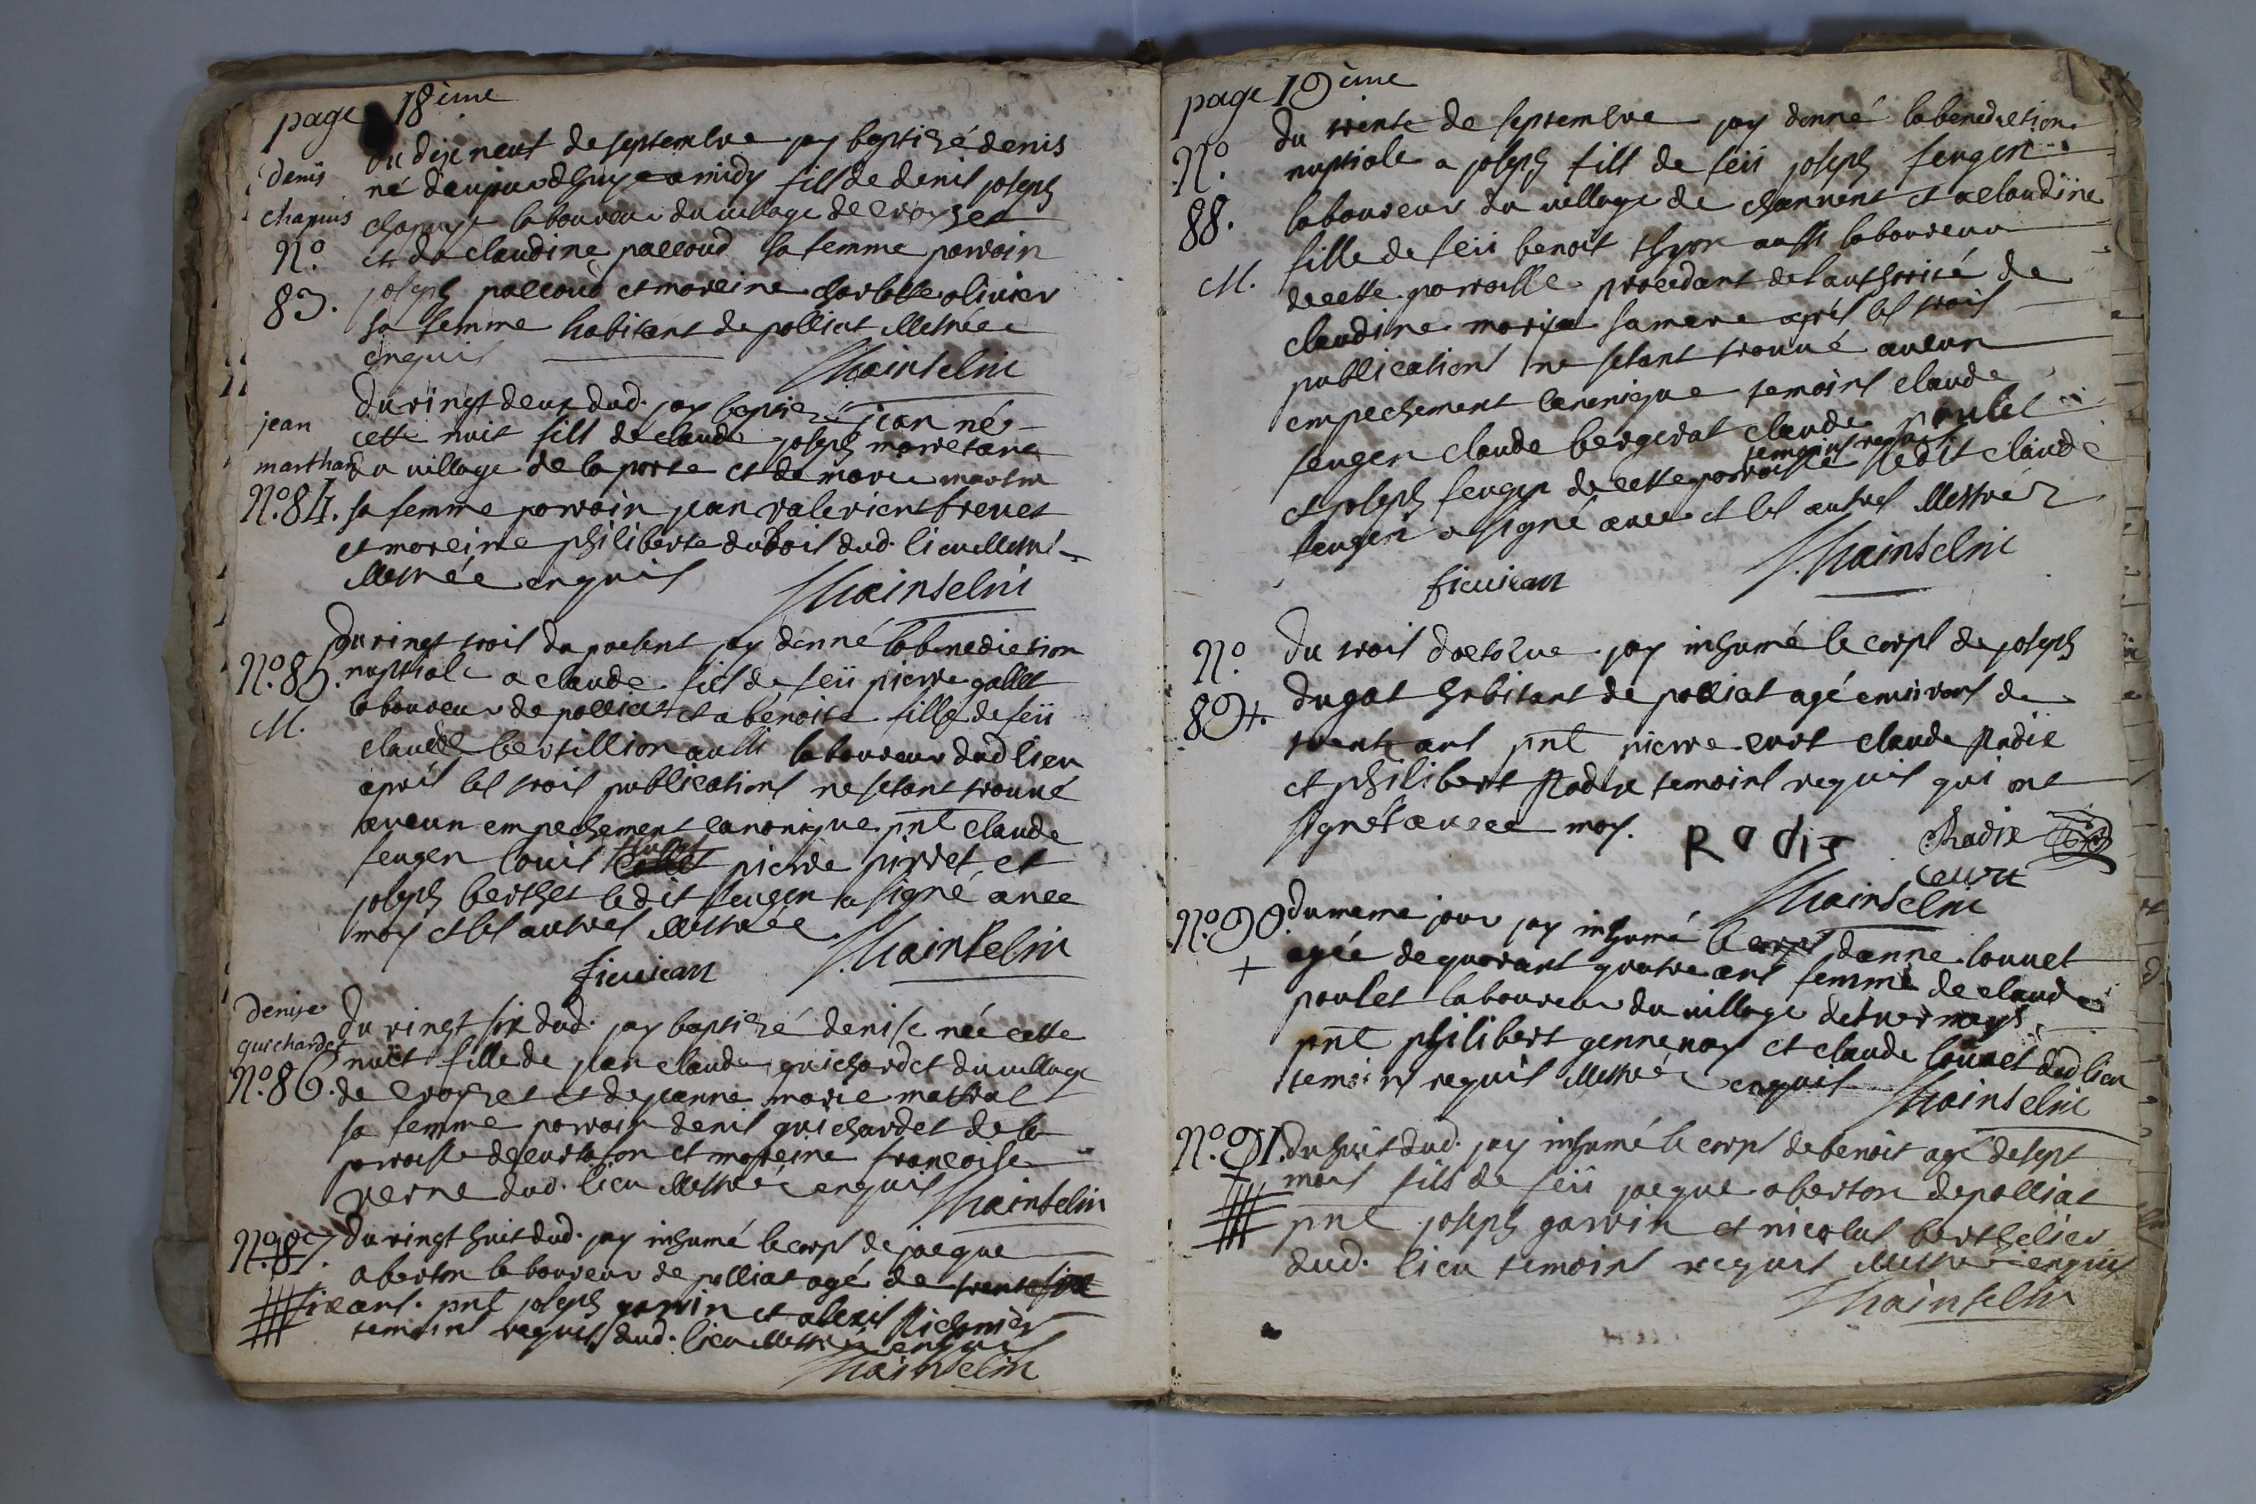 page 18ème
denis
chapuis
N°
83.
du dixneuf de septembre jay baptizé denis
né daujourdhuy a midy fils de denis joseph
chapuys laboureur du village de crozet
et de claudine paccoud sa femme parrain
joseph paccoud et mareine charlotte olivier
sa femme habitans de polliat illettrée
enquis
Mainselin
jean
N°.84.
du vingt deux dud. jay baptizé jean né
cette nuit fils de claude joseph marretan
du village de la porte et de marie martin
sa femme parrain jean valerient frevet
et mareine philiberte dubois dud. lieu illettré
illettrée enquis
Mainselin
N°.85.
M.
du vingt trois du present jay donné la benediction
nuptiale a claude fils de feü pierre gallet
laboureur de polliat et a benoite fille de feü
claude bertillion aussi laboureur dud lieu
aprés les trois publications ne sétant trouvé
aucun empechement canonique pnt claude
feugen louis pierre pirret et
joseph berthet ledit feugen a signé avec
moy et les autres illettrée
Mainselin
denise
guichardet
N°.86.
du vingt six dud. jay baptizé denise née cette
nuit fille de jean claude guichardet du village
de crozet et de jeanne marie mathal
sa femme parrain denis guichardet de la
parroisse de curtafon et mareine francoise
verne dud. lieu illettré enquis
Mainselin
N°.87.
du vingt huit dud. jay inhumé le corps de jacque
aberton laboureur de polliat agé de trente six
six ans. pnt joseph garrin et alexis Pichonier
temoins requis dud. lieu illettré enquis
Mainselin
page 19ème
N°.
88.
M.
du trente de septembre jay donné la benediction
nuptiale a joseph fils de feü joseph feugen
laboureur du village de channent et a claudine
fille de feü benoit thyon aussi laboureur
de cette parroisse procedant de l'authorité de
claudine sa mere aprés les trois
publications ne sétant trouvé aucun
empechement canonique temoins claude
feugen claude bergerat claude poulet
temoins requis
et joseph feugen de cette parroisse ledit claude
feugen a signé avec et les autres illettréz
Mainselin
N°
89+.
du trois d'octobre jay inhumé le corps de joseph
dugat habitant de polliat agé environs de
trente ans pnt pierre curt claude Radix
et philibert Radix temoins requis qui ont
signés avec moy.
Radix
Radix
Mainselin
N°.90.
+
du meme jour jay inhumé le corps danne louuet
agée de quarant quatre ans femme de claude
poulet laboureur du village de
pnt philibert gennenay et claude louuet dud lieu
temoins requis illettré enquis
Mainselin
N°.91.
du huit dud. jay inhumé le corps de benoit agé de sept
mois fils de feü jacque aberton de polliat
pnt joseph garrin et nicolas berthelier
dud. lieu temoins requis illettré enquis
Mainselin